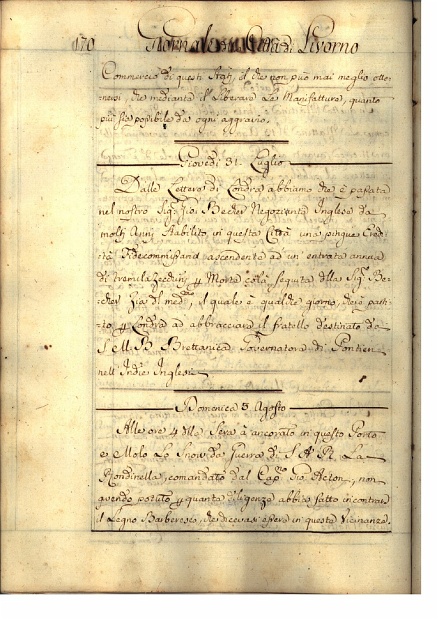 170 Giornale della Città di Livorno
Commercio di questi Stati, il che non può mai meglio otte-
nersi, che mediante il liberare le Manifatture, quanto
più sia possibile da ogni aggravio.
Giovedì 31. Luglio
Dalle Lettere di Londra abbiamo che è passata
nel nostro Sig.r Gio: Becher Negoziante Inglese da
molti Anni stabilito in questa Città una pingue Ered-
ità Fidecommissaria ascendente ad un'entrata annua
di tremila Zecchini p Morte colà seguita della Sig.ra Be-
cher Zia del med.mo, il quale è qualche giorno, che è parti-
to p Londra ad abbracciare il fratello destinato da
S. M. B. Brettanica Governatore di
nell'Indie Inglesi
Domenica 3. Agosto
Alle ore 4 della Sera à ancorato in questo Porto
e Molo lo Snow da Guerra di S. A. R. La
Rondinella, comandato dal Cap.no Gio. Acton, non
avendo potuto p quanta diligenza abbia fatto incontrare
il Legno Barbaresco, che dicevasi essere in questa Vicinanza.